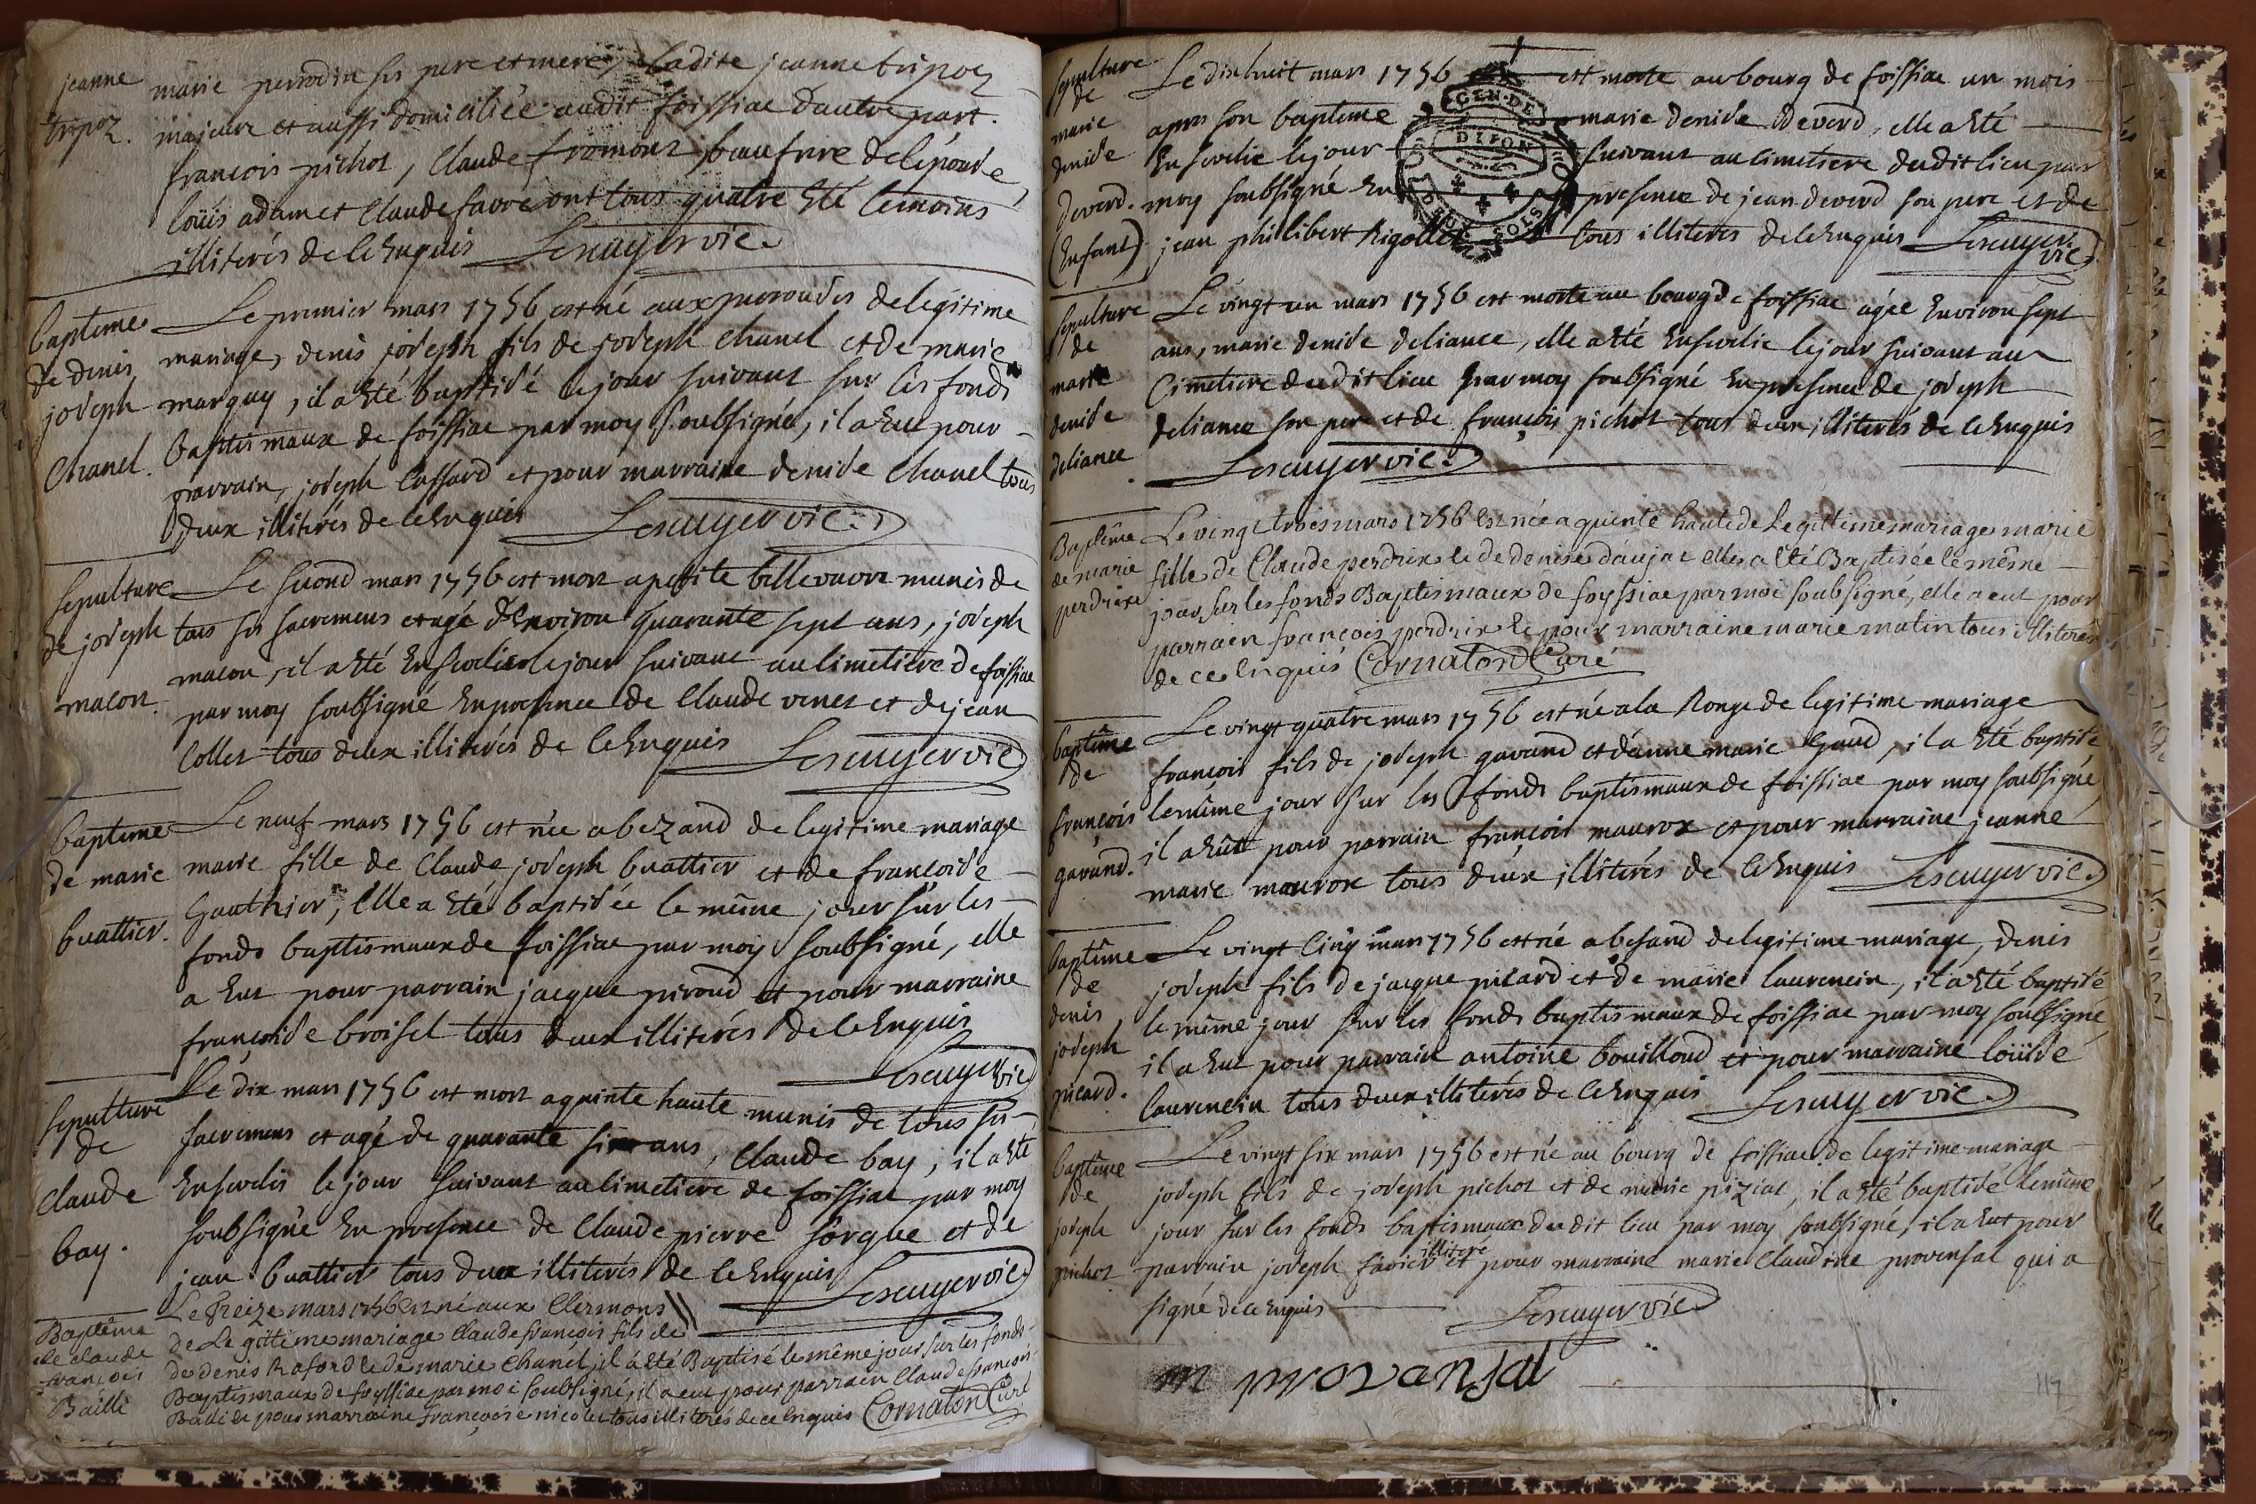 jeanne
tripoz.
marie perrodin ses pere et mere, et ladite jeanne tripoz
majeure et aussi domiciliée audit foissiac d'autre part.
françois pichot, Claude fromont beaufrere de lépouse,
loüis adam et Claude favre ont tous quatre été temoins
illiterés de ce Enquis Lescuyer vic.
baptême
de denis
joseph
Chanel.
Le premier mars 1756 est né aux de legitime
mariage, denis joseph fils de joseph Chanel et de marie
marguy, il a été baptisé le jour suivant sur les fonds
baptismaux de foissiac par moy soubsigné, il a Eut pour
parrain, joseph Cassard et pour marraine denise Chanel tous
deux illiterés de ce Enquis Lescuyer vic.
sepulture
de joseph
macon.
Le second mars 1756 est mort a petite villevavre munis de
tous ses sacremens et agé d'Environ quarante sept ans, joseph
macon, il a été Enseveli le jour suivant au Cimetiere de foissiac
par moy soubsigné En presence de Claude venet et de jean
Collet tous deux illiterés de ce Enquis Lescuyer vic.
baptême
de marie
buattier.
Le neuf mars 1756 est née a bezand de legitime mariage
marie fille de Claude joseph buattier et de françoise
Gauthier, Elle a été baptisée le même jour sur les
fonds baptismaux de foissiac par moy soubsigné, elle
a Eut pour parrain jacque piroud et pour marraine
françoise broisel tous deux illiterés de ce Enquis
Lescuyer vic
sepulture
de
Claude
bay.
Le dix mars 1756 est mort a quinte haute munis de tous ses
sacremens et agé de quarante six ans, Claude bay, il a été
Enseveli le jour suivant au Cimetiere de foissiac par moy
soubsigné En presence de Claude pierre sorgue et de
jean buattier tous deux illiterés de ce Enquis Lescuyer vic.
Baptême
de claude
françois
Le Treize mars 1756 Est né aux Clermons
de Legitime mariage Claude françois fils de
de denis et de marie Chanel, il á été Baptisé le même jour sur les fonds
Baptismaux de foyssiac par moi soubsigné, il a eut pour parrain Claude françois
et pour marraine françoise nicolet tous illiterés de ce Enquis Cornaton Curé
sepulture
de
marie
denise
deverd.
(Enfant)
Le dix huit mars 1756 est morte au bourg de foissiac un mois
apres son baptême marie denise deverd, elle a été
Ensevelie le jour suivant au Cimetiere dudit lieu par
moy soubsigné En presence de jean deverd son pere et de
jean philibert Rigollet tous illiterés de ce Enquis Lescuyer
vic.
GEN. DE
DIJON
DEUX SOLS
sepulture
de
marie
denise
deliance
Le vingt un mars 1756 est morte au bourg de foissiac agée Environ sept
ans, marie denise deliance, elle a été Ensevelie le jour suivant au
Cimetiere dudit lieu par moy soubsigné En presence de joseph
deliance son pere et de françois pichot tous deux illiterés de ce Enquis
Lescuyer vic.
Baptême
de marie
perdrix
Le vingt trois mars 1756 Est née a quinte haute de Legitime mariage marie
fille de Claude perdrix et de denise daujat elle a été Baptisée le même
jour sur les fonds Baptismaux de foyssiac par moi soubsigné, elle a eut pour
parrain françois perdrix et pour marraine marie matin tous illiterés
de ce Enquis Cornaton Curé
baptême
de
françois
gavand.
Le vingt quatre mars 1756 est né a la Ronge de legitime mariage
françois fils de joseph gavand et d'anne marie Gaud, il a été baptisé
le même jour sur les fonds baptismaux de foissiac par moy soubsigné,
il a Eut pour parrain françois mauron et pour marraine jeanne
marie mouron tous deux illiterés de ce Enquis Lescuyer vic.
baptême
de
denis
joseph
picard.
Le vingt Cinq mars 1756 est né a besand de legitime mariage, denis
joseph fils de jacque picard et de marie laurencin, il a été baptisé
le même jour sur les fonds baptismaux de foissiac par moy soubsigné,
il a Eut pour parrain antoine bouilloud et pour marraine loüise
laurencin tous deux illiterés de ce Enquis Lescuyer vic.
baptême
de
joseph
pichot
Le vingt six mars 1756 est né au bourg de foissiac de legitime mariage
joseph fils de joseph pichot et de marie piziat, il a été baptisé le même
jour sur les fonds baptismaux dudit lieu par moy soubsigné, il a Eut pour
illiteré
parrain joseph favier et pour marraine marie Claudine provensal qui a
signé de ce Enquis Lescuyer vic
m provansal
117